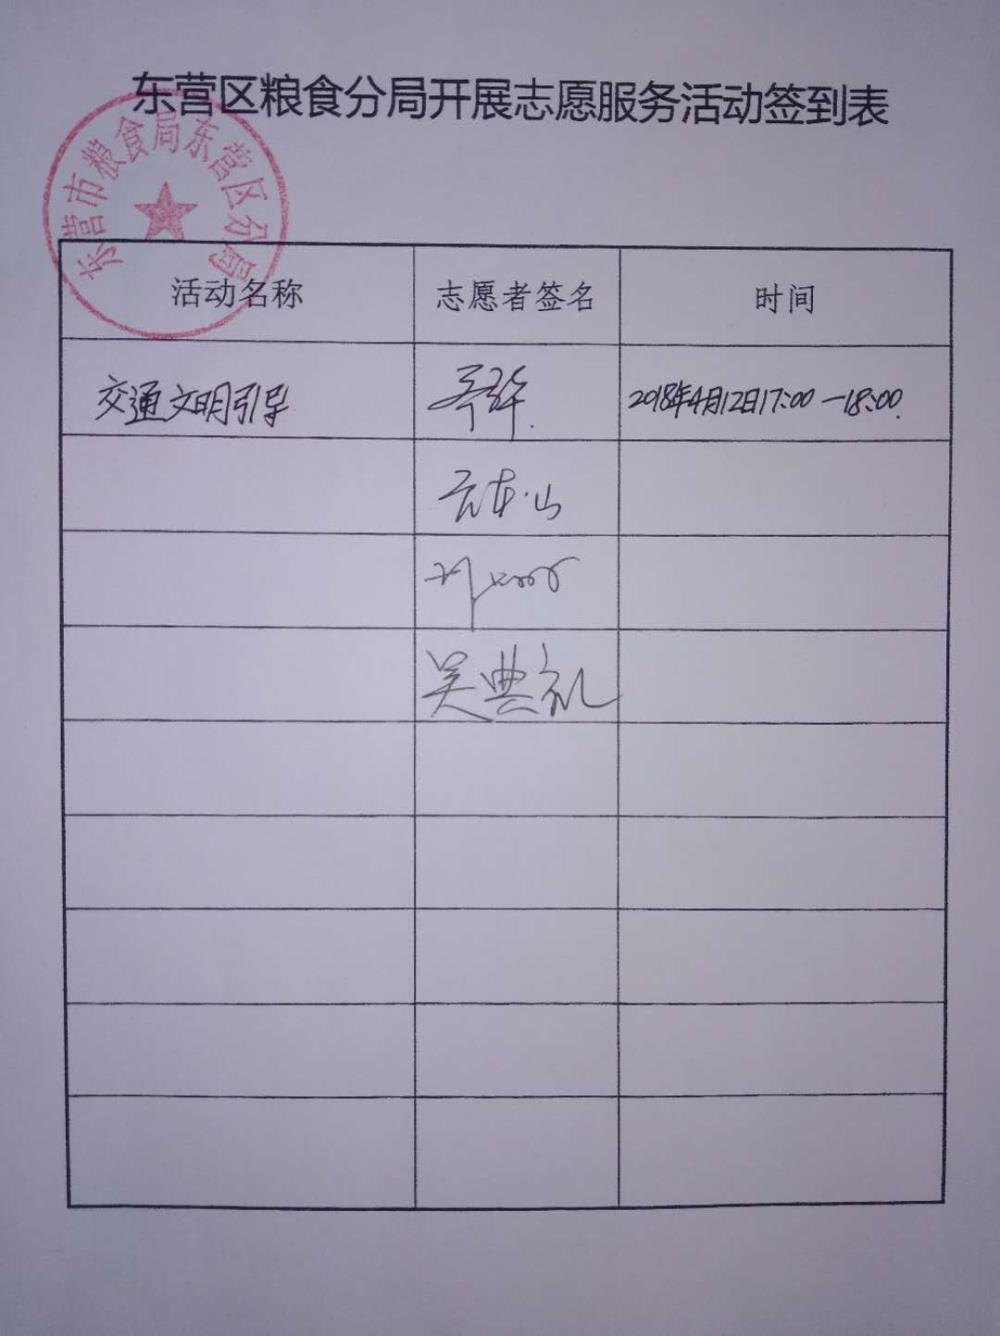 东营区粮食分局开展志愿服务活动签到表
东营市粮食局东营区分局
活动名称 志愿者签名 时间
交通文明引导 2018年4月12日17:00-18:00.
吴典礼